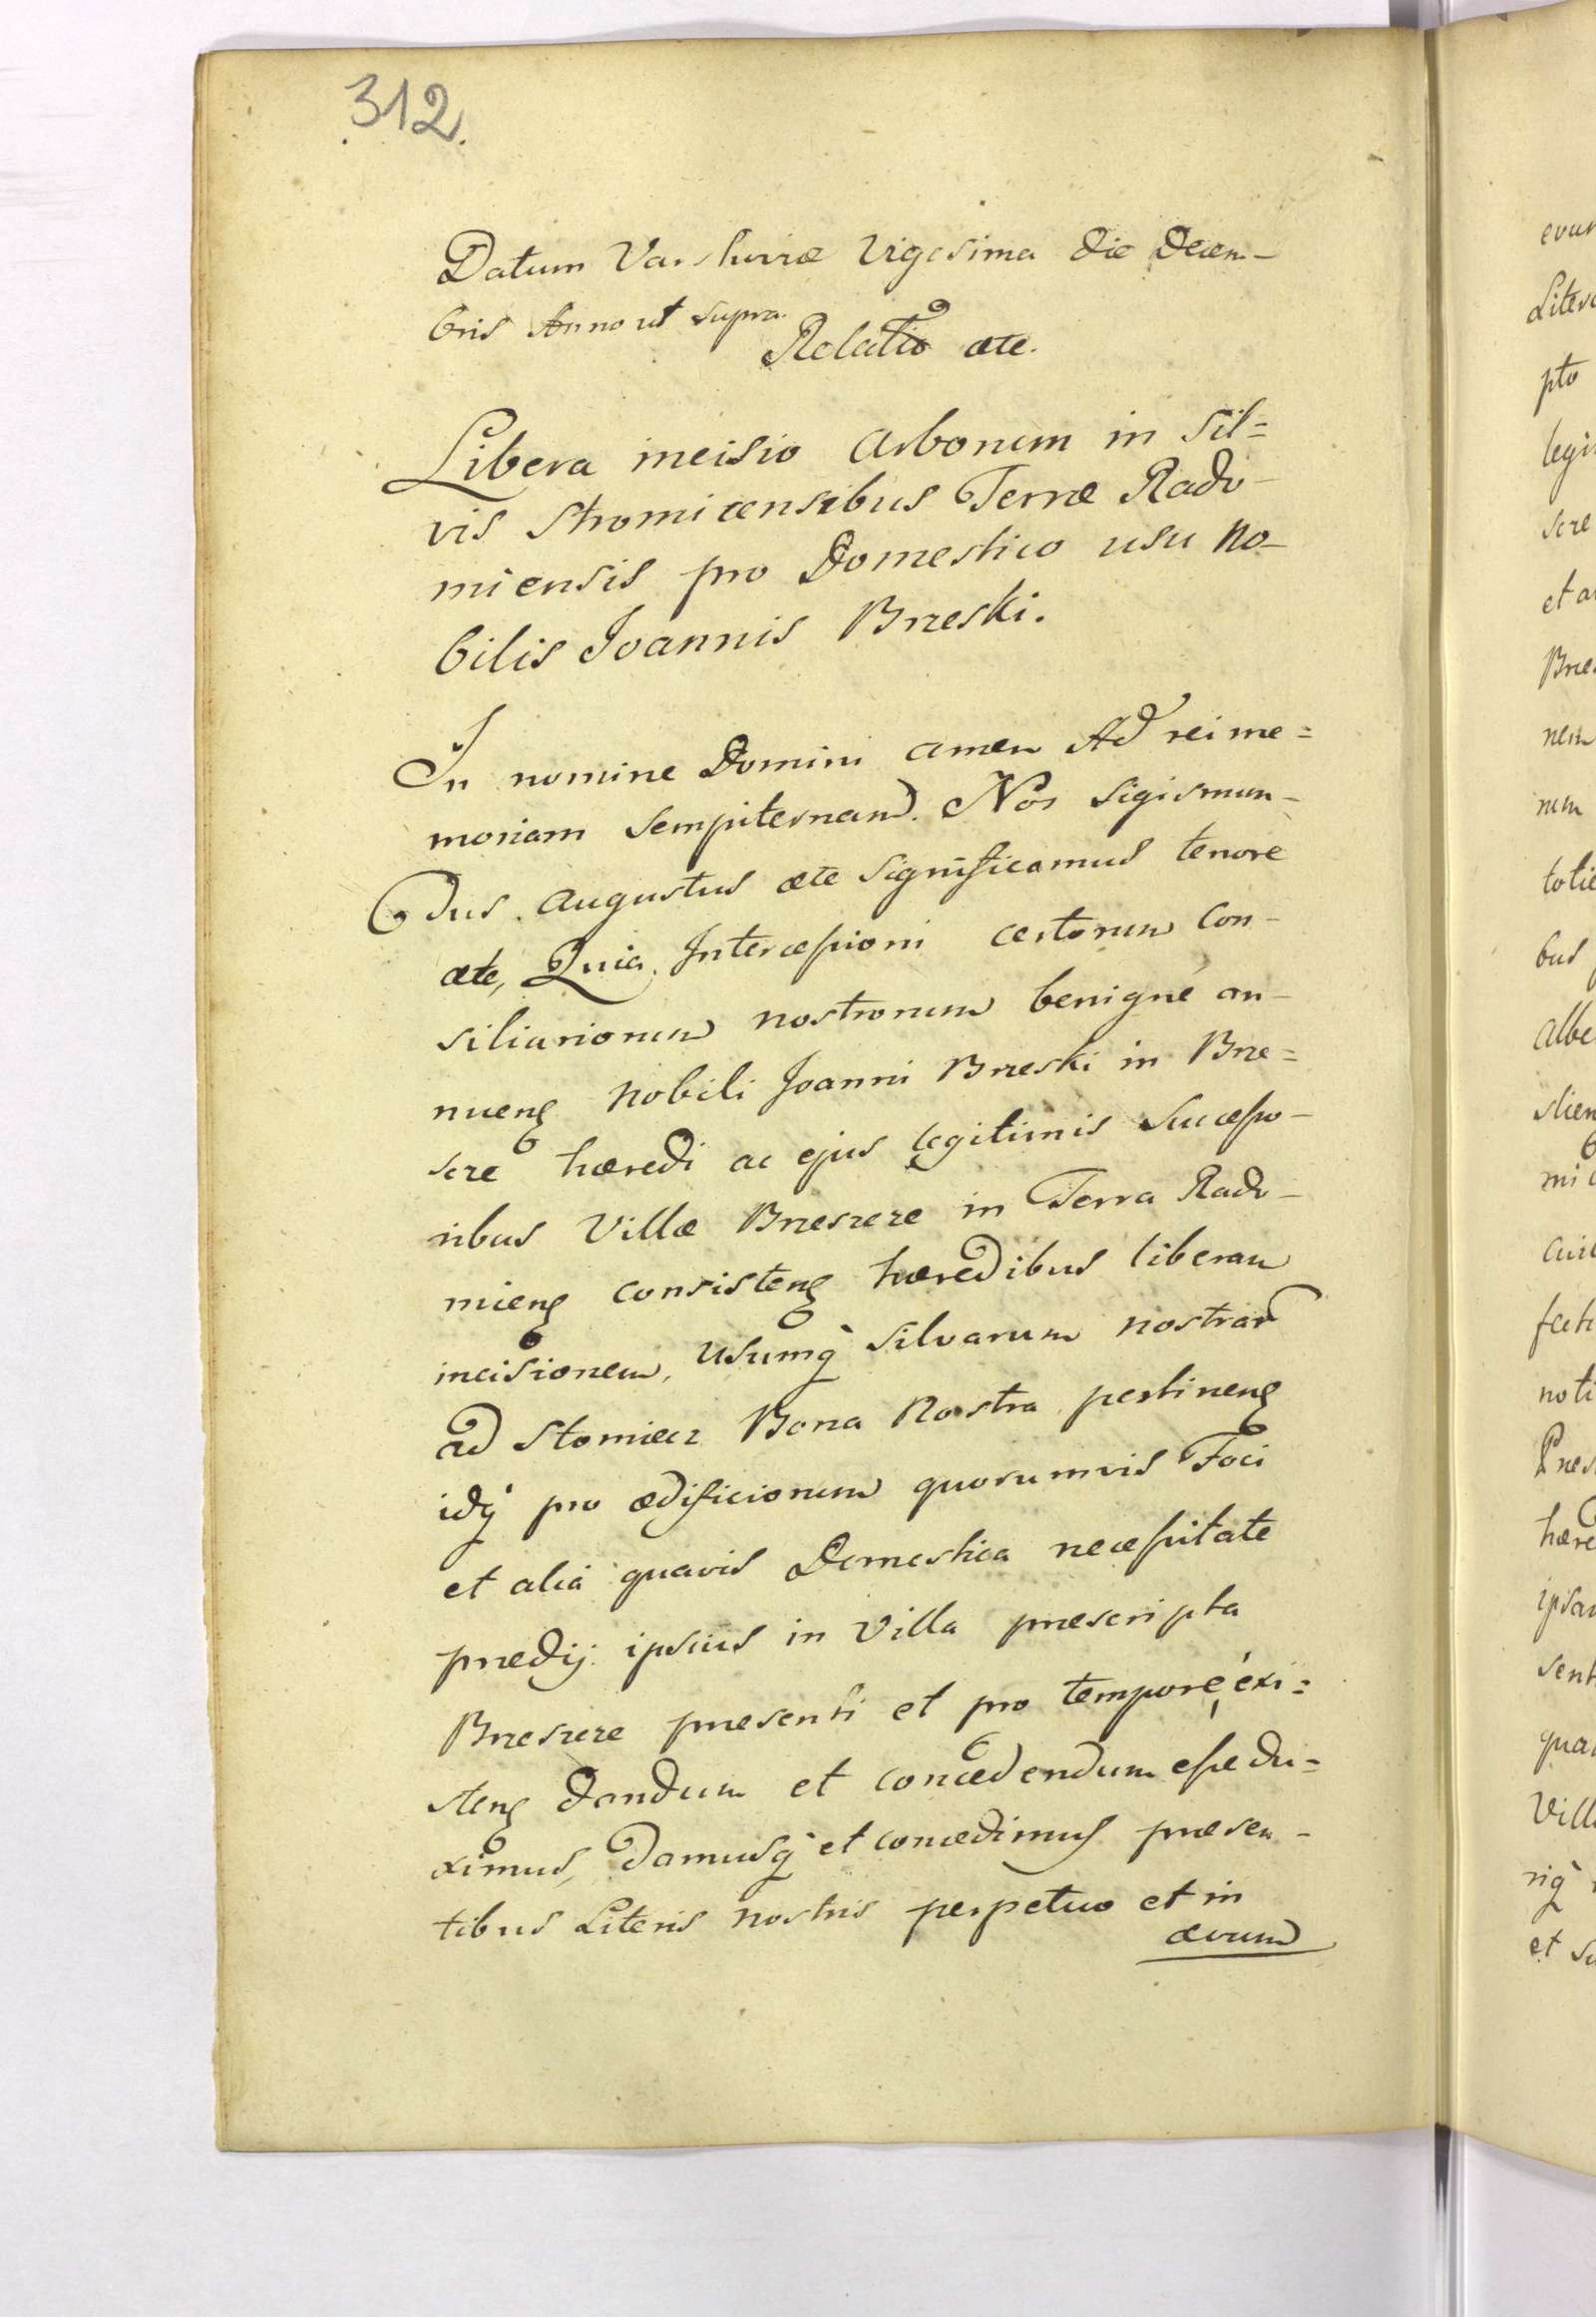 312.
Datum Varshaviæ Vigesima die Decem-
bris Anno ut supra.
Relatio ætc.
Libera incisio Arborum in Sil=
vis Stromicensibus Terræ Rado-
miensis pro Domestico usu No-
bilis Joannis Brzeski.
In nomine Domini amen Ad rei me=
moriam sempiternam. Nos Sigismun-
dus Augustus ætc significamus tenore
ætc, Quia Intercessioni certorum Con-
siliariorum nostrorum benigne an-
nueng nobili Joanni Brzeski in Brze=
scze hæredi ac ejus legitimis Successo-
ribus Villæ Brzescze in Terra Rado-
mieng consisteng hæredibus liberam
incisionem, Usumq silvarum nostrar
ad Stomiecz Bona Nostra pertineng
idq pro ædificiorum quorumvis Foci
et alia quavis Domestica necessitate
prædij ipsius in Villa præscripta
Brzescze præsenti et pro tempore exi=
steng dandum et concedendum esse du=
ximus, Damusq et concedimus præsen-
tibus Literis nostris perpetuo et in
ævum
evum
Litera
pto
legi
scze
et a
Brze
nem
num
totie
bus
Albe
stien
mi
cui
fect
noti
Pres
hære
ipsa
sent
qua
Vill
riq
et su